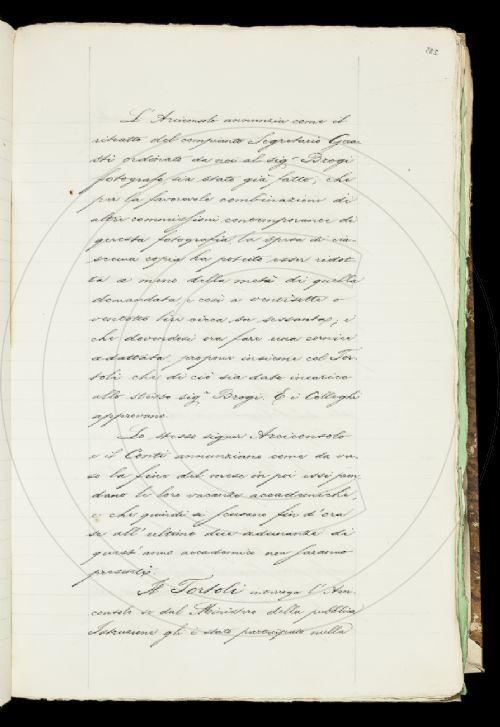 L'Arciconsolo annunzia come il
ritratto del compianto Segretario Gua-
sti ordinato da noi al sigr Brogi
fotografo sia stato già fatto; che
per la favorevole combinazione di
altre commissioni contemporanee di
questa fotografia la spesa di cia-
scuna copia ha potuto esser ridot-
ta a meno della metà di quella
domandata e così a ventisette o
ventotto lire circa da sessanta; e
che dovendosi ora fare una cornice
adattata, propone insieme col Tor-
toli che di ciò sia dato incarico
allo stesso sigr Brogi. E i Colleghi
approvano.
Lo stesso signor Arciconsolo
e il Conti annunziano come da ver-
so la fine del mese in poi essi pren-
dano le loro vacanze accademiche,
e che quindi si scusano fin d'ora
se all'ultime due adunanze di
quest'anno accademico non saranno
presenti.
Il Tortoli interroga l'Arci-
consolo se dal Ministro della pubblica
Istruzione gli è stato partecipato nulla